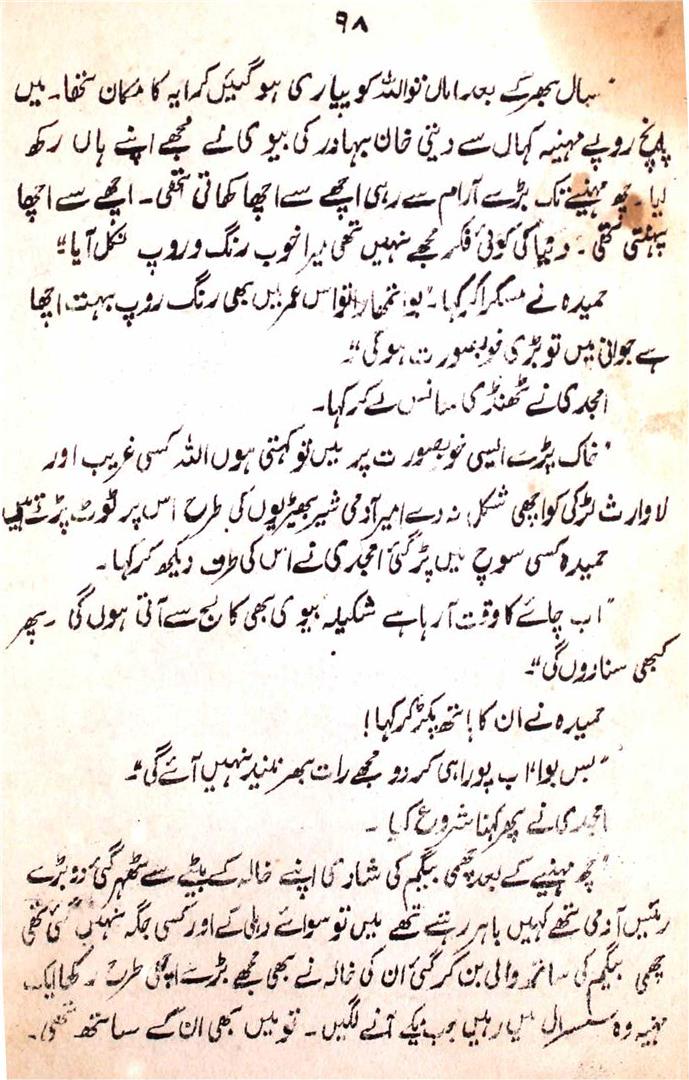 ۹۸
"سال بھر کے بعد اماں تو اللہ کو پیاری ہو گئیں کرایہ کا مکان تھا۔ میں
پانچ روپے مہینہ کہاں سے دیتی خان بہادر کی بیوی نے مجھے اپنے ہاں رکھ
لیا۔ چھ مہینے تک بڑے آرام سے رہی اچھے سے اچھا کھاتی تھی۔ اچھے سے اچھا
پہنتی تھی۔ دنیا کی کوئی فکر مجھے نہیں تھی میرا خوب رنگ و روپ نکل آیا"
حمیدہ نے مسکرا کر کہا۔ "بوا تمھارا تو اس عمر میں بھی رنگ روپ بہت اچھا
ہے جوانی میں تو بڑی خوبصورت ہو گی"۔
امجدی نے ٹھنڈی سانس لے کر کہا۔
"خاک پڑے ایسی خوبصورت پر میں تو کہتی ہوں اللہ کسی غریب اور
لاوارث لڑکی کو اچھی شکل نہ دے امیر آدمی شیر بھیڑیوں کی طرح اس پر ٹوٹ پڑتے ہیں
حمیدہ کسی سوچ میں پڑ گئی امجدی نے اس کی طرف دیکھ کر کہا۔
"اب چائے کا وقت آ رہا ہے شکیلہ بیوی بھی کالج سے آتی ہوں گی۔ پھر
کبھی سنا دوں گی"۔
حمیدہ نے ان کا ہاتھ پکڑ کر کہا!
"بس بوا" اب پورا ہی کر دو مجھے رات بھر نیند نہیں آئے گی"۔
امجدی نے پھر کہنا شروع کیا۔
"چھ مہینے کے بعد چھمی بیگم کی شادی اپنے خالہ کے بیٹے سے ٹھہر گئی وہ بڑے
رئیس آدمی تھے کہیں باہر رہتے تھے میں تو سوائے دہلی کے اور کسی جگہ نہیں گئی تھی
چھمی بیگم کی ساتھ والی بن کر گئی ان کی خالہ نے بھی مجھے بڑے اچھی طرح رکھا ایک
مہینہ وہ سسرال میں رہیں جب میکے آنے لگیں۔ تو میں بھی ان کے ساتھ تھی۔